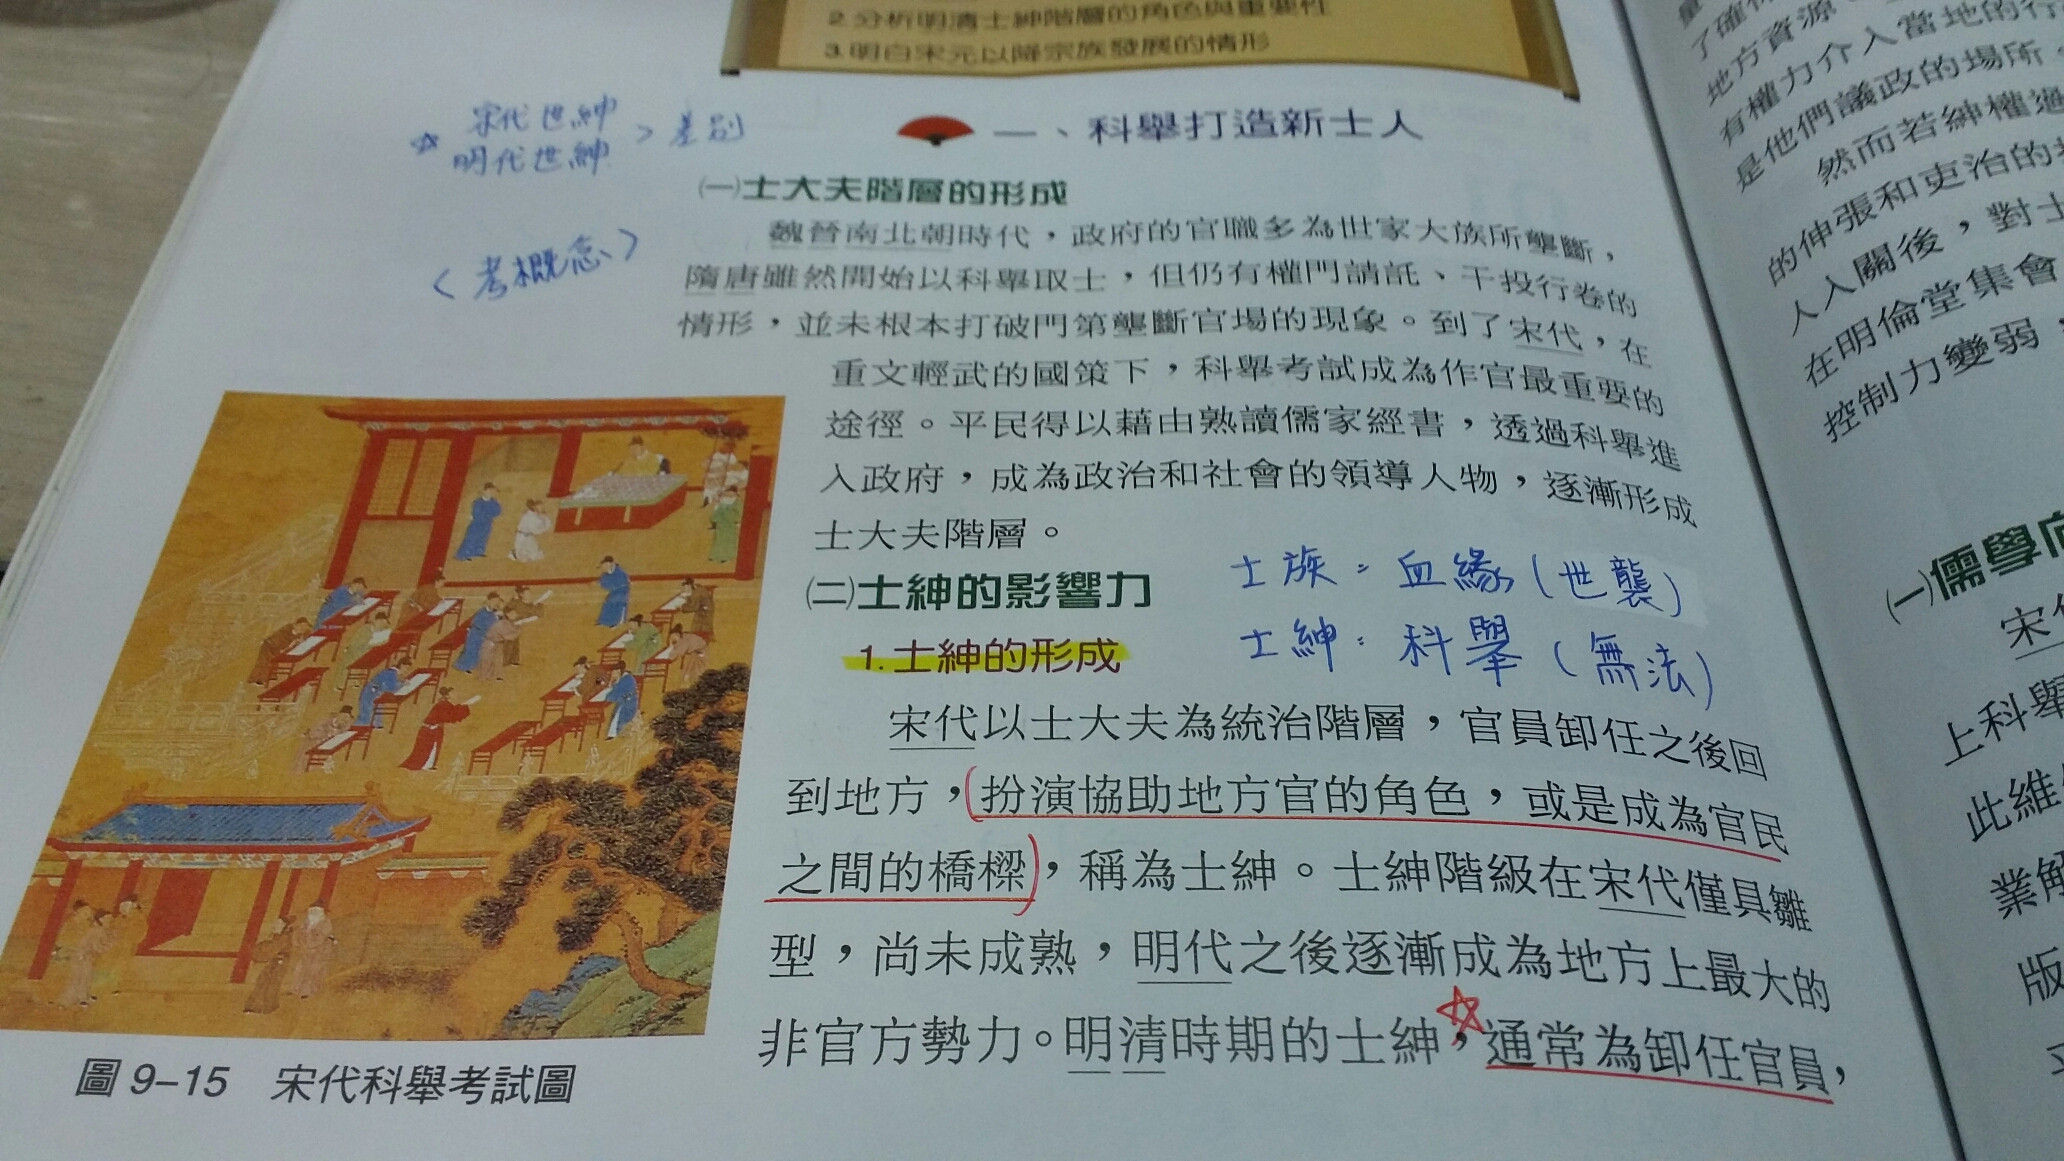 2.分析明清士紳階層的角色與重要性
3.明白宋元以降宗族發展的情形
☆ 宋代世紳
明代世紳 > 差別
<考概念>
一、科舉打造新士人
㈠士大夫階層的形成
魏晉南北朝時代，政府的官職多為世家大族所壟斷，
隋唐雖然開始以科舉取士，但仍有權門請託、干投行卷的
情形，並未根本打破門第壟斷官場的現象。到了宋代，在
重文輕武的國策下，科舉考試成為作官最重要的
途徑。平民得以藉由熟讀儒家經書，透過科舉進
入政府，成為政治和社會的領導人物，逐漸形成
士大夫階層。
㈡士紳的影響力
士族：血緣(世襲)
士紳：科舉(無法)
1.士紳的形成
宋代以士大夫為統治階層，官員卸任之後回
到地方，(扮演協助地方官的角色，或是成為官民
之間的橋樑)，稱為士紳。士紳階級在宋代僅具雛
型，尚未成熟，明代之後逐漸成為地方上最大的
非官方勢力。明清時期的士紳，☆通常為卸任官員，
圖9-15 宋代科舉考試圖
了確
地方資源
有權力介入當地的行
是他們議政的場所
然而若紳權過
的伸張和吏治的
人入關後，對士
在明倫堂集會
控制力變弱，
㈠儒學向
宋代
上科舉
此維
業解
版